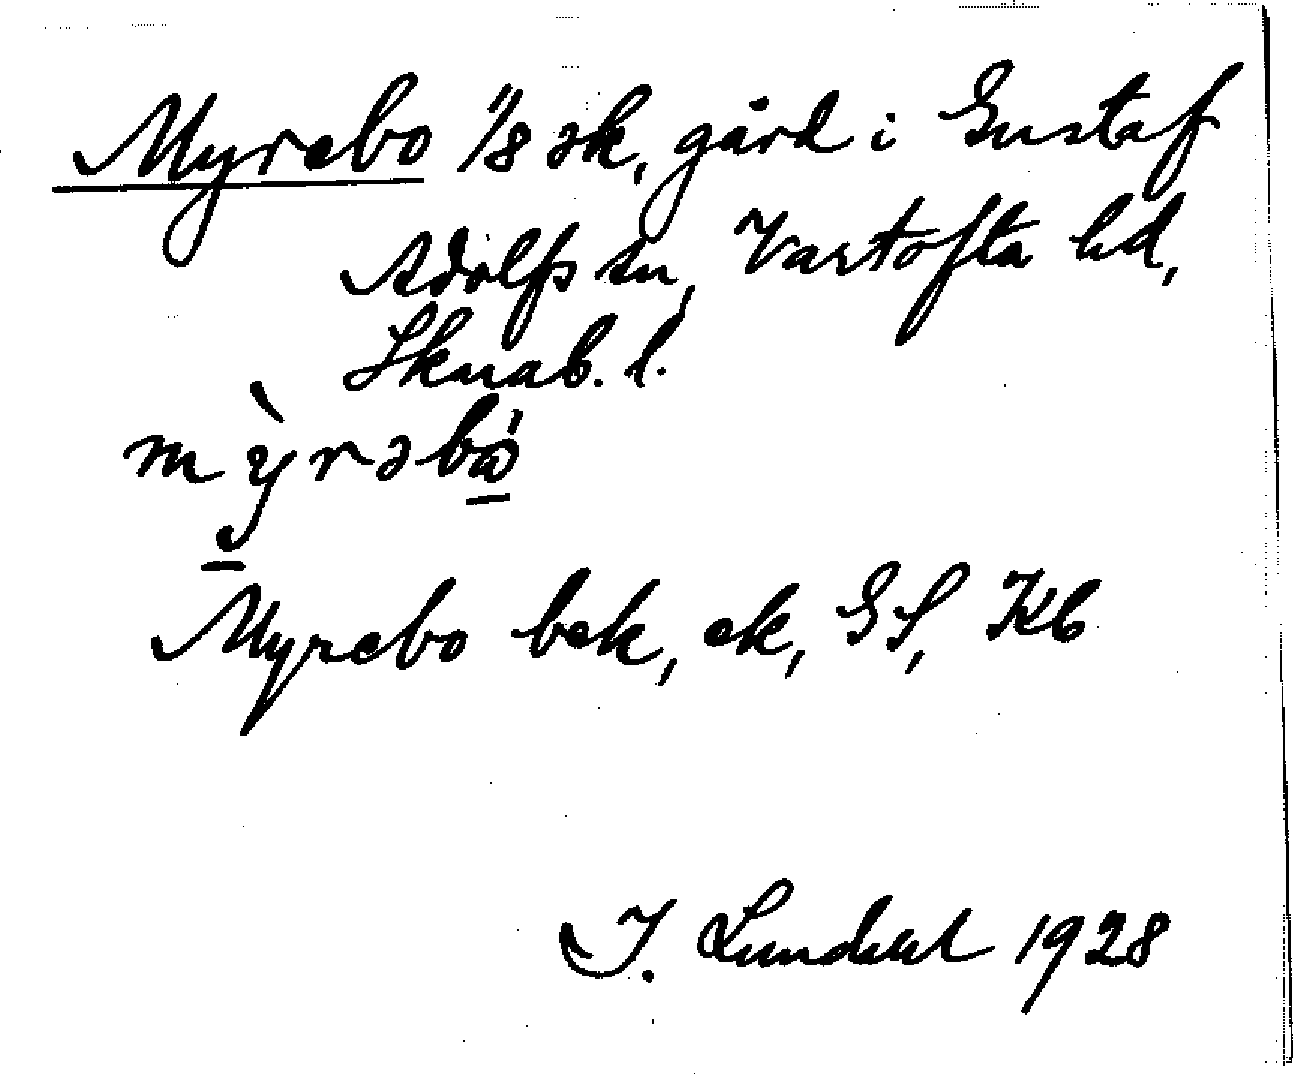 Myrebo 1/8 sk, gård i Gustaf
Adolfs sn, Vartofta hd,
Skarab. l.
mỳrəbó
Myrebo bek, ek, GS, Kb
I. Lundahl 1928